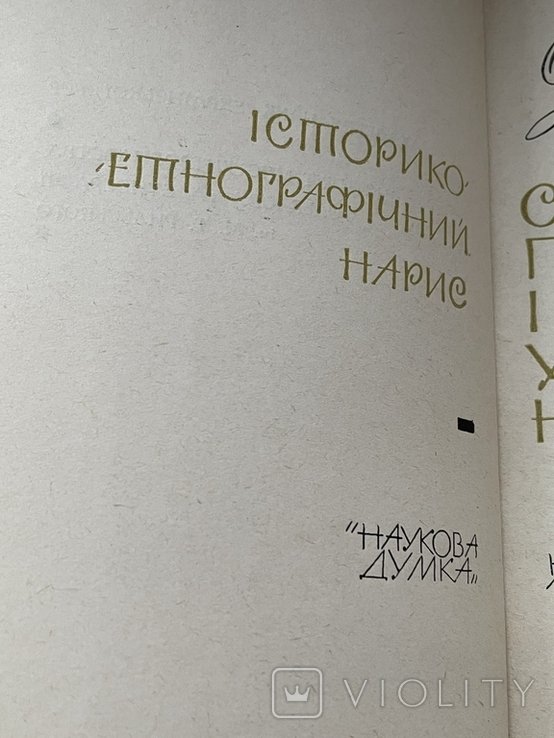 ІСТОРИКО-
-ЕТНОГРАФІЧНИЙ
НАРИС
"НАУКОВА
ДУМКА"
VIOLITY